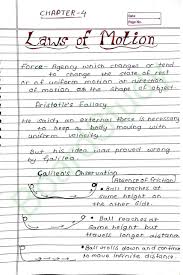 CHAPTER-4
Date
Page No.
Laws of Motion
Force- Agency which changes or tend
to change the state of rest
or of uniform motion or direction of
motion or the shape of object.
Aristotle's Fallacy
He said an external force is necessary
to keep a body moving
with uniform velocity.
But his idea was proved wrong
by Galileo.
Galileo's Observation
(Absence of friction)
• Ball reaches at
same height on
the other side.
• Ball reaches at
Same height but
travels longer distance
• Ball rolls down and continue
to move infinite distance.